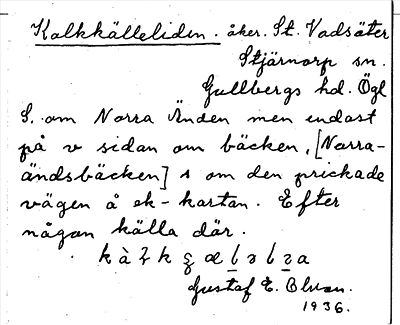 Kalkkälleliden. åker. St. Vadsäter
Stjärnorp sn.
Gullbergs hd. Ögl
S. om Norra Änden men endast
på v sidan om bäcken, [Norra-
ändsbäcken] s om den prickade
vägen å ek-kartan. Efter
någon källa där.
Gustaf E. Blman.
1936.